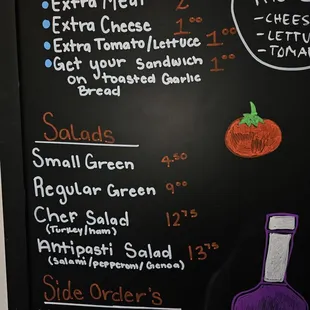 •Extra Meat 2
•Extra Cheese 1.00
•Extra Tomato/Lettuce 1.00
•Get your Sandwich 1.00
on toasted Garlic
Bread
-CHEES
-LETTU
-TOMA
Salads
Small Green 4.50
Regular Green 9.00
Chef Salad 12.75
(Turkey/ham)
Antipasti Salad 13.75
(Salami/pepperoni/Genoa)
Side Order's